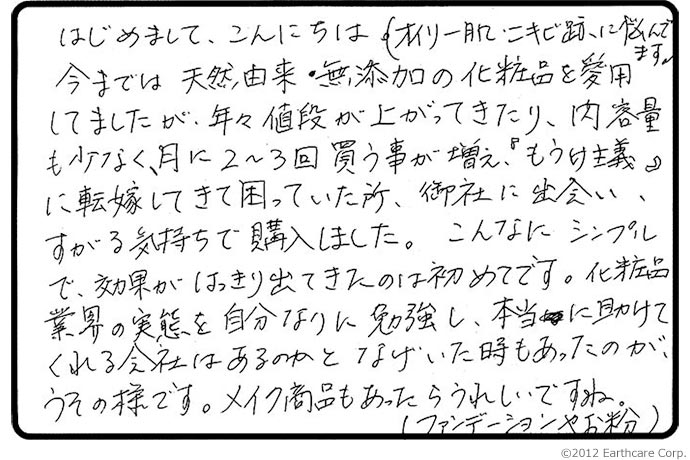 はじめまして、こんにちは(オイリー肌・ニキビ跡、に悩んでます。
今までは天然由来・無添加の化粧品を愛用
してましたが、年々値段が上がってきたり、内容量
も少なく、月に2〜3回買う事が増え、『もうけ主義』
に転嫁してきて困っていた所、御社に出会い、
すがる気持ちで購入しました。こんなにシンプル
で、効果がはっきり出てきたのは初めてです。化粧品
業界の実態を自分なりに勉強し、本当に助けて
くれる会社はあるのかとなげいた時もあったのが、
うその様です。メイク商品もあったらうれしいですね。
(ファンデーションやお粉)
©2012 Earthcare Corp.